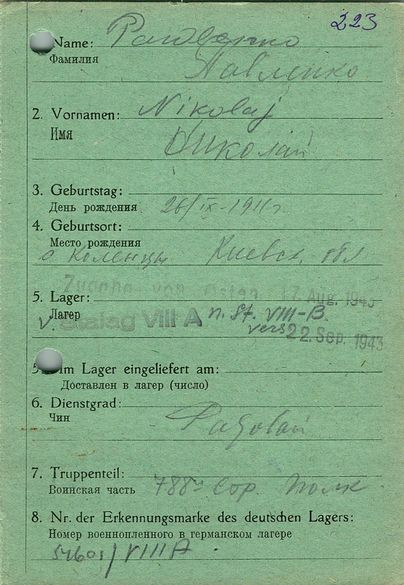 223
1. Name:
Фамилия Павленко
2. Vornamen: Nikolaj
Имя Николай
3. Geburtstag:
День рождения 26/IX-1911г
4. Geburtsort:
Место рождения
с Коленцы Киевск. обл
Zugang von Osten 17. Aug. 1943
5. Lager:
Лагер
v. Stalag VIII A n. St. VIII-B.
vers 22. Sep. 1943
Im Lager eingeliefert am:
Доставлен в лагер (число)
6. Dienstgrad:
Чин Рядовой
7. Truppenteil:
Воинская часть 788й Полк
8. Nr. der Erkennungsmarke des deutschen Lagers:
Номер военнопленного в германском лагере
/VIII A